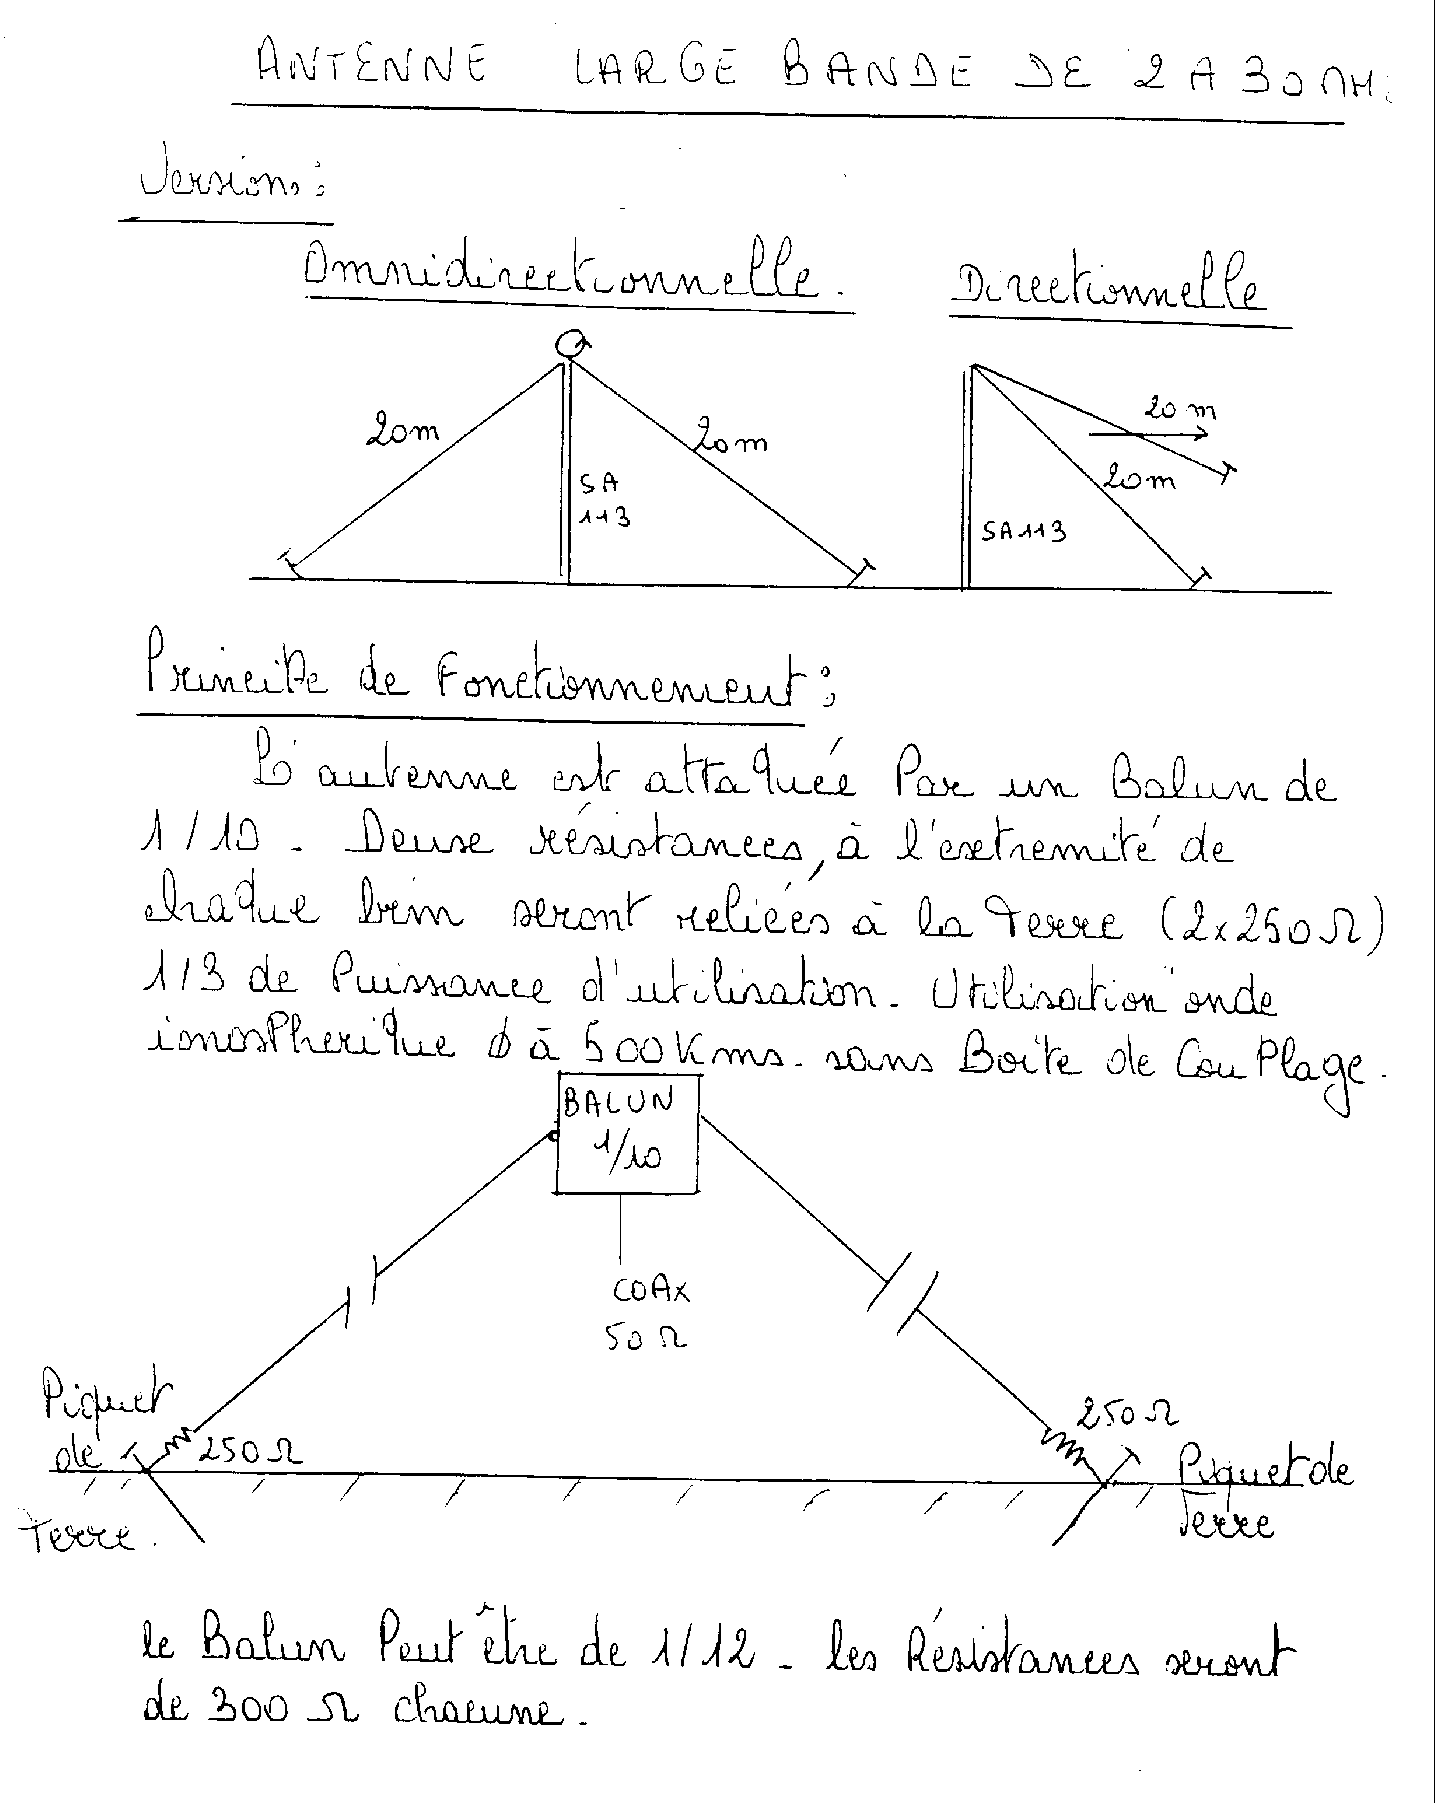 ANTENNE LARGE BANDE DE 2 A 30 MH
Versions:
Omnidirectionnelle. Directionnelle
20m 20m 20 m
SA 20m
113 SA113
Principe de Fonctionnement:
L'antenne est attaquée Par un Balun de
1/10. Deuxe résistances, à l'extremité de
chaque brin seront reliées à la Terre (2x250Ω)
1/3 de Puissance d'utilisation. Utilisation onde
ionosPherique 0 à 500Kms. sans Boite de CouPlage.
BALUN
1/10
COAX
50Ω
Piquet 250Ω
de 250Ω Piquet de
Terre. Terre
le Balun Peut être de 1/12 - les Résistances seront
de 300 Ω chacune.